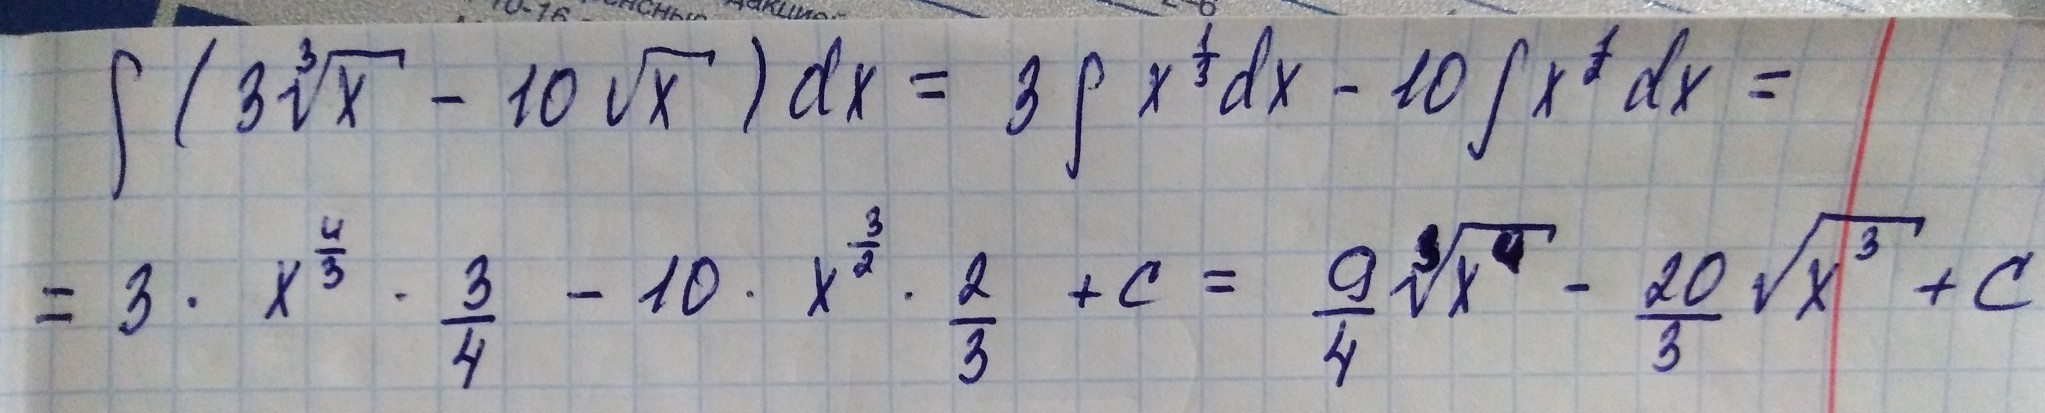 10-16
∫(3∛x - 10√x)dx = 3∫x^{1/3}dx - 10∫x^{1/2}dx =
= 3 · x^{4/3} · 3/4 - 10 · x^{3/2} · 2/3 + c = 9/4 ∛(x^4) - 20/3 √(x^3) + C